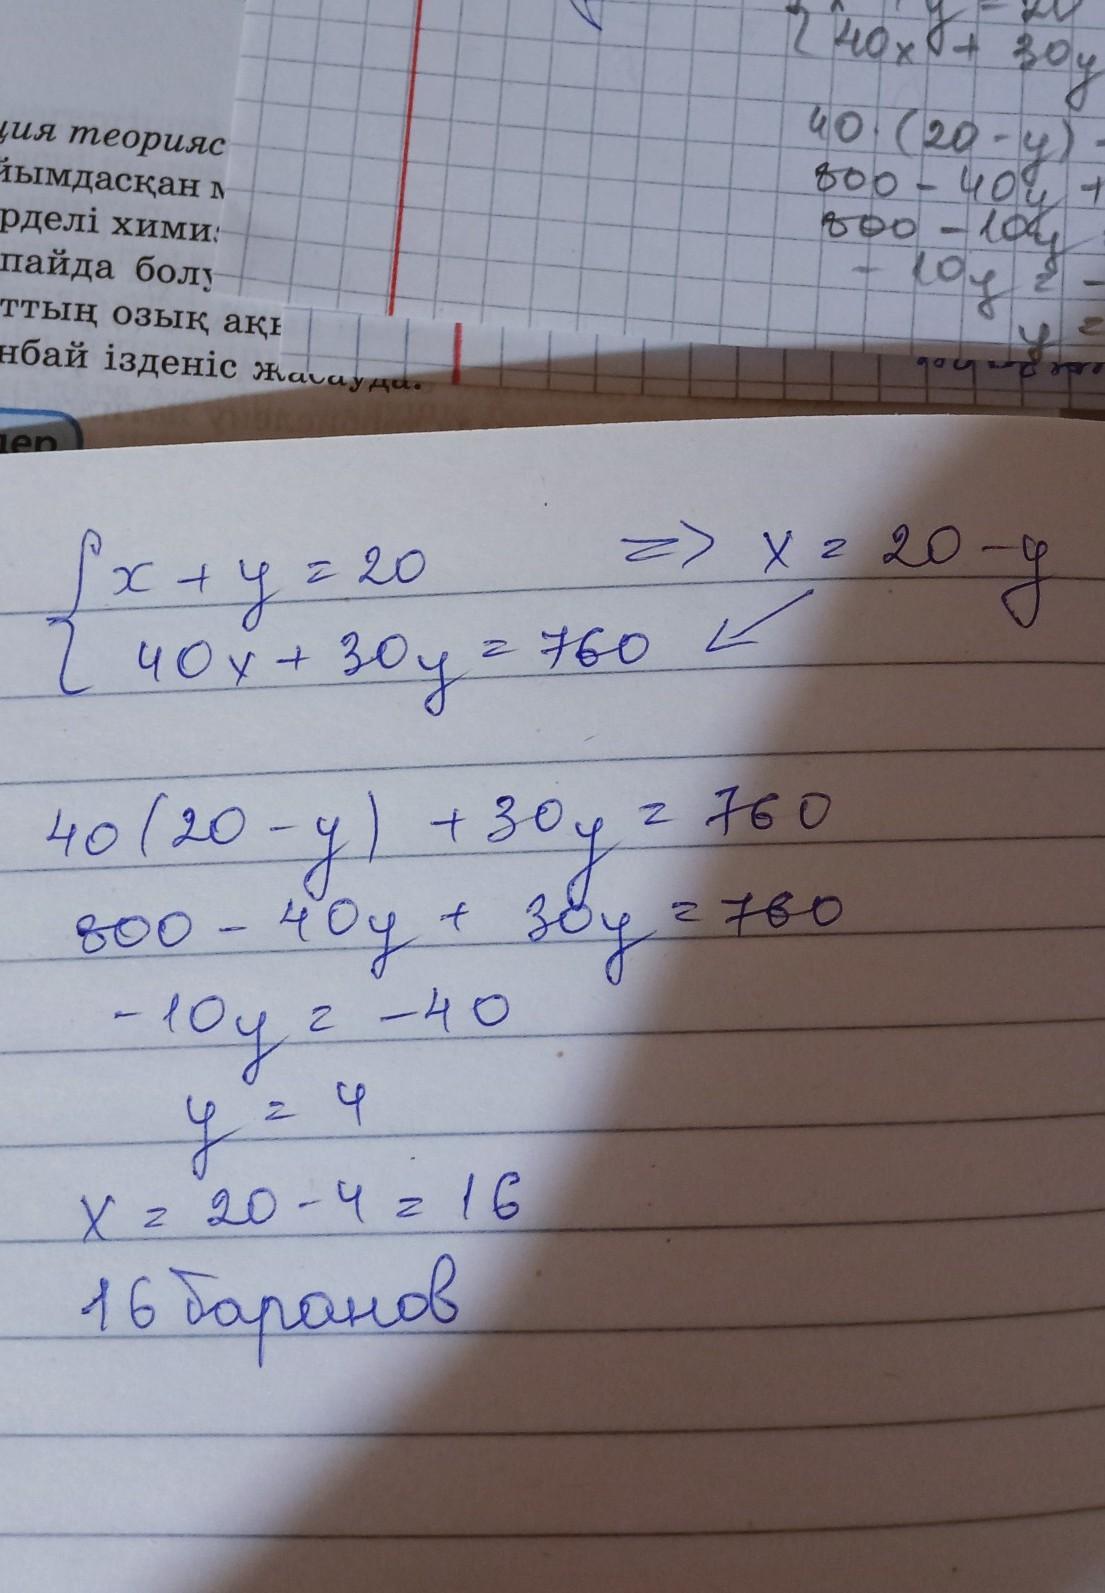 ция теорияс
йымдасқан м
рделі химия
пайда болу
ттың озық ақы
нбай ізденіс жасауда.
дер
y = 20
40x + 30y
40·(20-y)
800 - 40y +
800 - 10y
- 10y = -
y =
x + y = 20 => x = 20 - y
40x + 30y = 760
40(20 - y) + 30y = 760
800 - 40y + 30y = 760
-10y = -40
y = 4
x = 20 - 4 = 16
16 баранов